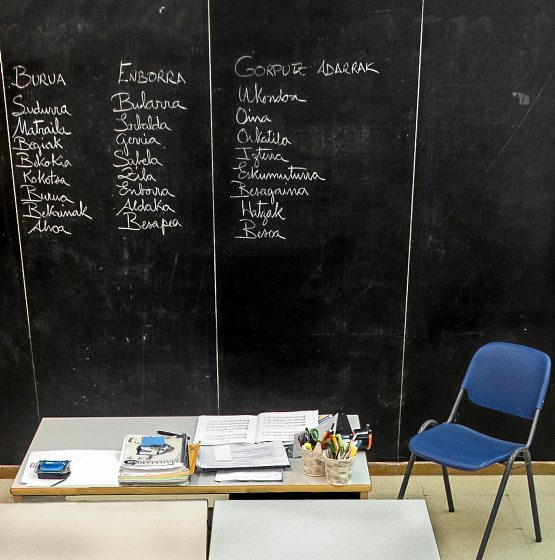 BURUA
Sudurra
Matraila
Begiak
Bekokia
Kokotsa
Burua
Belarriak
Ahoa
ENBORRA
Bularra
Sorbalda
Gerria
Sabela
Zila
Enborra
Aldaka
Besapea
GORPUTZ ADARRAK
Ukondoa
Oina
Orkatila
Izterra
Eskumuturra
Besagaina
Hatzak
Besoa
MATEMATIKA